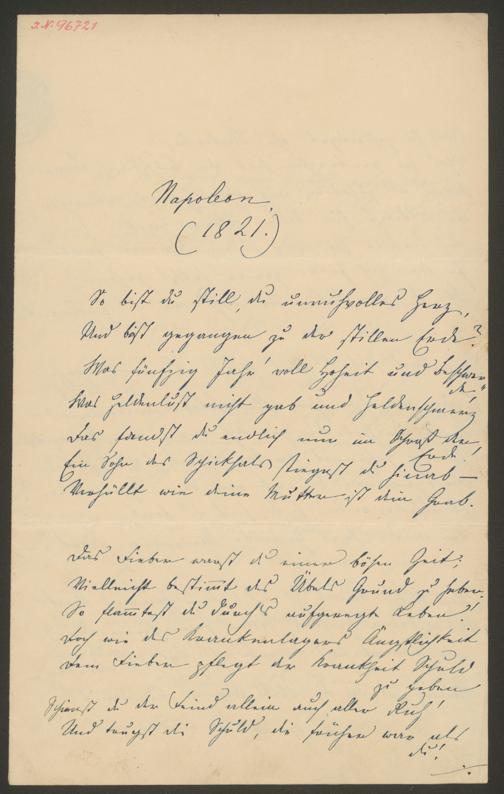 I.N. 96721
Napoleon.
(1821.)
So bist du still, du unruhvolles Herz,
Und bist gegangen zu der stillen Erde?
Was fünfzig Jahr' voll Hoheit und Beschwer-
de,
Was Heldenlust nicht gab und Heldenschmerz
Das fandst du endlich nun im Schoß der
Erde!
Ein Sohn des Schicksals stiegest du hinab —
Verhüllt wie deine Mutter ist dein Grab.
Das Fieber warst du einer bösen Zeit;
Vielleicht bestimmt des Übels Grund zu heben,
So flammtest du durch's aufgeregte Leben
Doch wie des Krankenlagers Ängstlichkeit
Dem Fieber pflegt der Krankheit Schuld
zu geben
Schienst du der Feind allein auch aller Ruh'
Und trugst die Schuld, die früher war als
du!